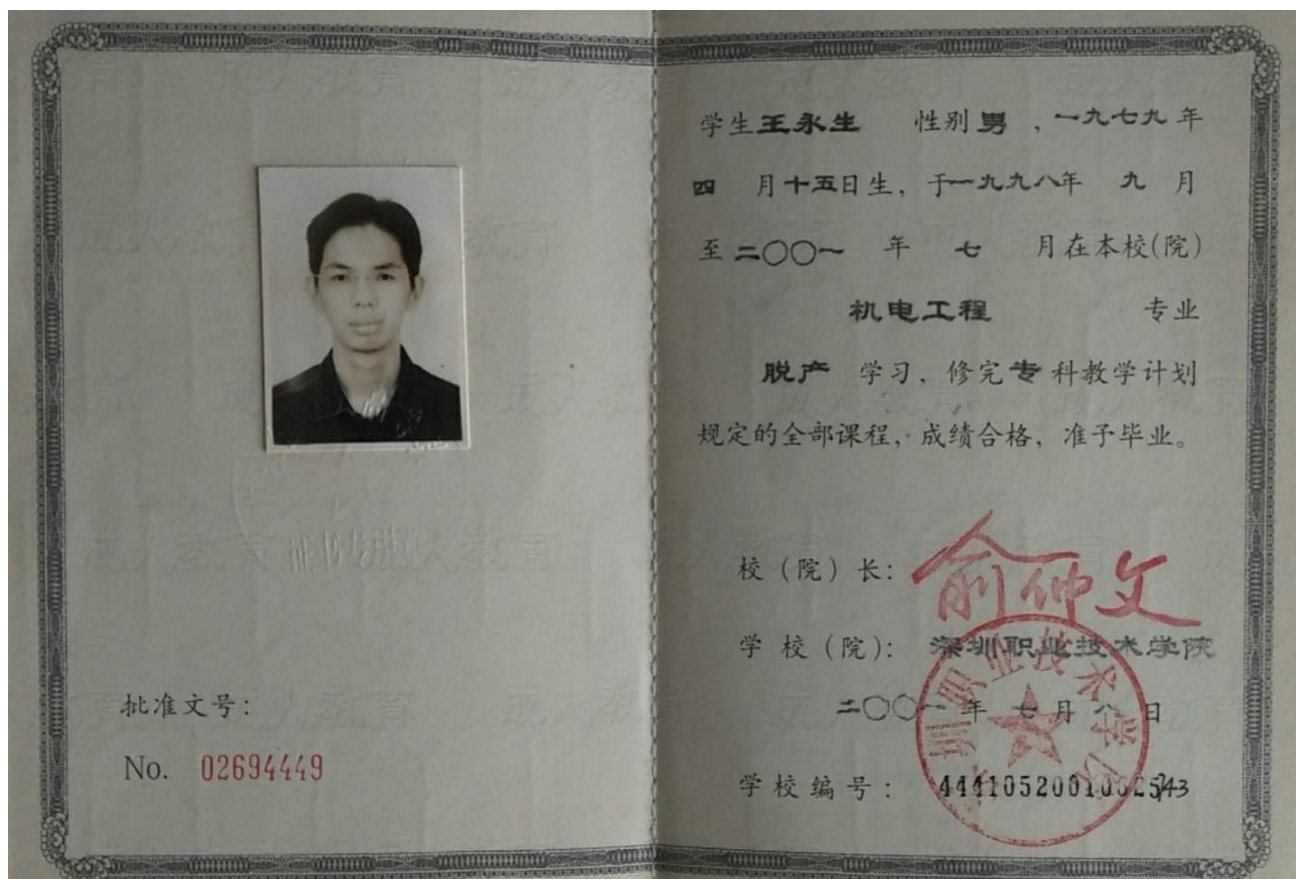 批准文号：
No. 02694449
学生王永生 性别男，一九七九年
四 月十五日生，于一九九八年 九 月
至二〇〇一 年 七 月在本校(院)
机电工程 专业
脱产 学习，修完专科教学计划
规定的全部课程，成绩合格，准予毕业。
校（院）长：俞仲文
学校（院）：深圳职业技术学院
二〇〇一年七月八日
学校编号：
深圳职业技术学院
成人教育